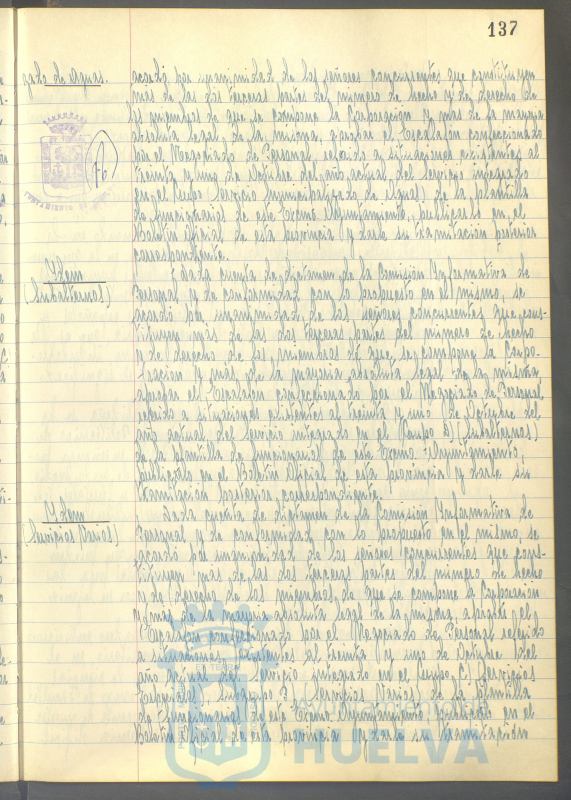 137
zado de Aguas.
acordó por unanimidad de los señores concurrentes que constituyen
más de las dos terceras partes del número de hecho y de derecho de
los miembros de que se compone la Corporación y más de la mayoría
absoluta legal de la misma, aprobar el Escalafón confeccionado
por el Negociado de Personal, referido a situaciones existentes al
treinta y uno de Octubre del año actual del Servicio integrado
en el Grupo (Servicio Municipalizado de Aguas) de la plantilla
de funcionarios de este Excmo. Ayuntamiento, publicarlo en el
Boletín Oficial de esta provincia y darle su tramitación posterior
correspondiente.
Idem
(Subalternos)
Dada cuenta de dictamen de la Comisión Informativa de
Personal y de conformidad con lo propuesto en el mismo, se
acordó por unanimidad de los señores concurrentes que cons-
tituyen más de las dos terceras partes del número de hecho
y de derecho de los miembros de que se compone la Corpo-
ración y más de la mayoría absoluta legal de la misma
aprobar el Escalafón confeccionado por el Negociado de Personal,
referido a situaciones existentes al treinta y uno de Octubre del
año actual, del Servicio integrado en el Grupo D (Subalternos)
de la plantilla de funcionarios de este Excmo. Ayuntamiento,
publicarlo en el Boletín Oficial de esta provincia y darle su
tramitación posterior correspondiente.
Idem
(Servicios Varios)
Dada cuenta de dictamen de la Comisión Informativa de
Personal y de conformidad con lo propuesto en el mismo, se
acordó por unanimidad de los señores concurrentes que cons-
tituyen más de las dos terceras partes del número de hecho
y de derecho de los miembros de que se compone la Corporación
y más de la mayoría absoluta legal de la misma, aprobar el
Escalafón confeccionado por el Negociado de Personal referido
a situaciones existentes al treinta y uno de Octubre del
año actual del Servicio integrado en el Grupo C) Servicios
Especiales, Subgrupo (Servicios Varios) de la plantilla
de funcionarios de este Excmo. Ayuntamiento publicarlo en el
Boletín Oficial de esta provincia y darle su tramitación
Ayuntamiento de
HUELVA